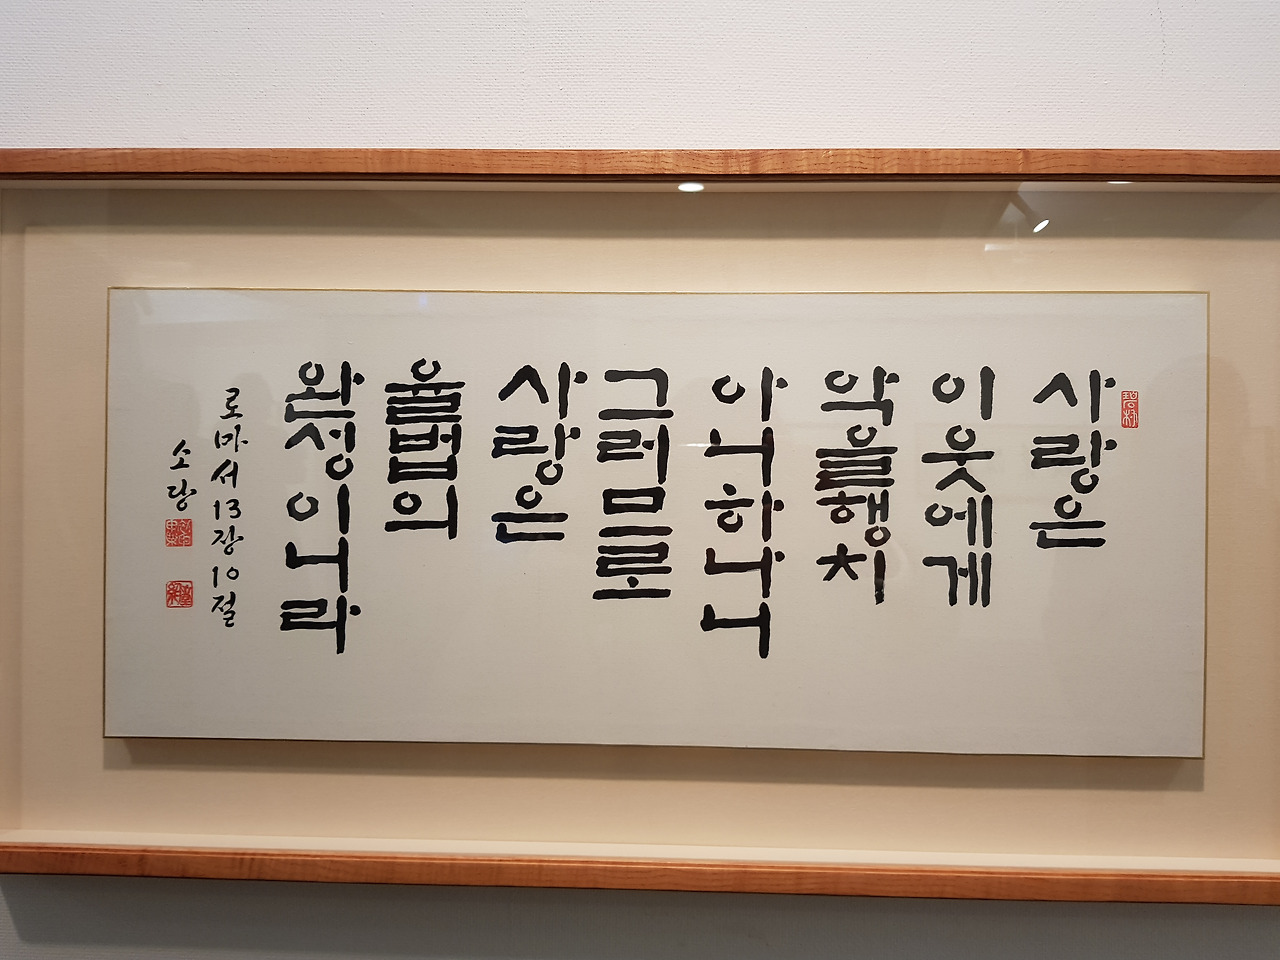 사랑은
이웃에게
악을행치
아니하나니
그러므로
사랑은
율법의
완성이니라
로마서13장10절
소당